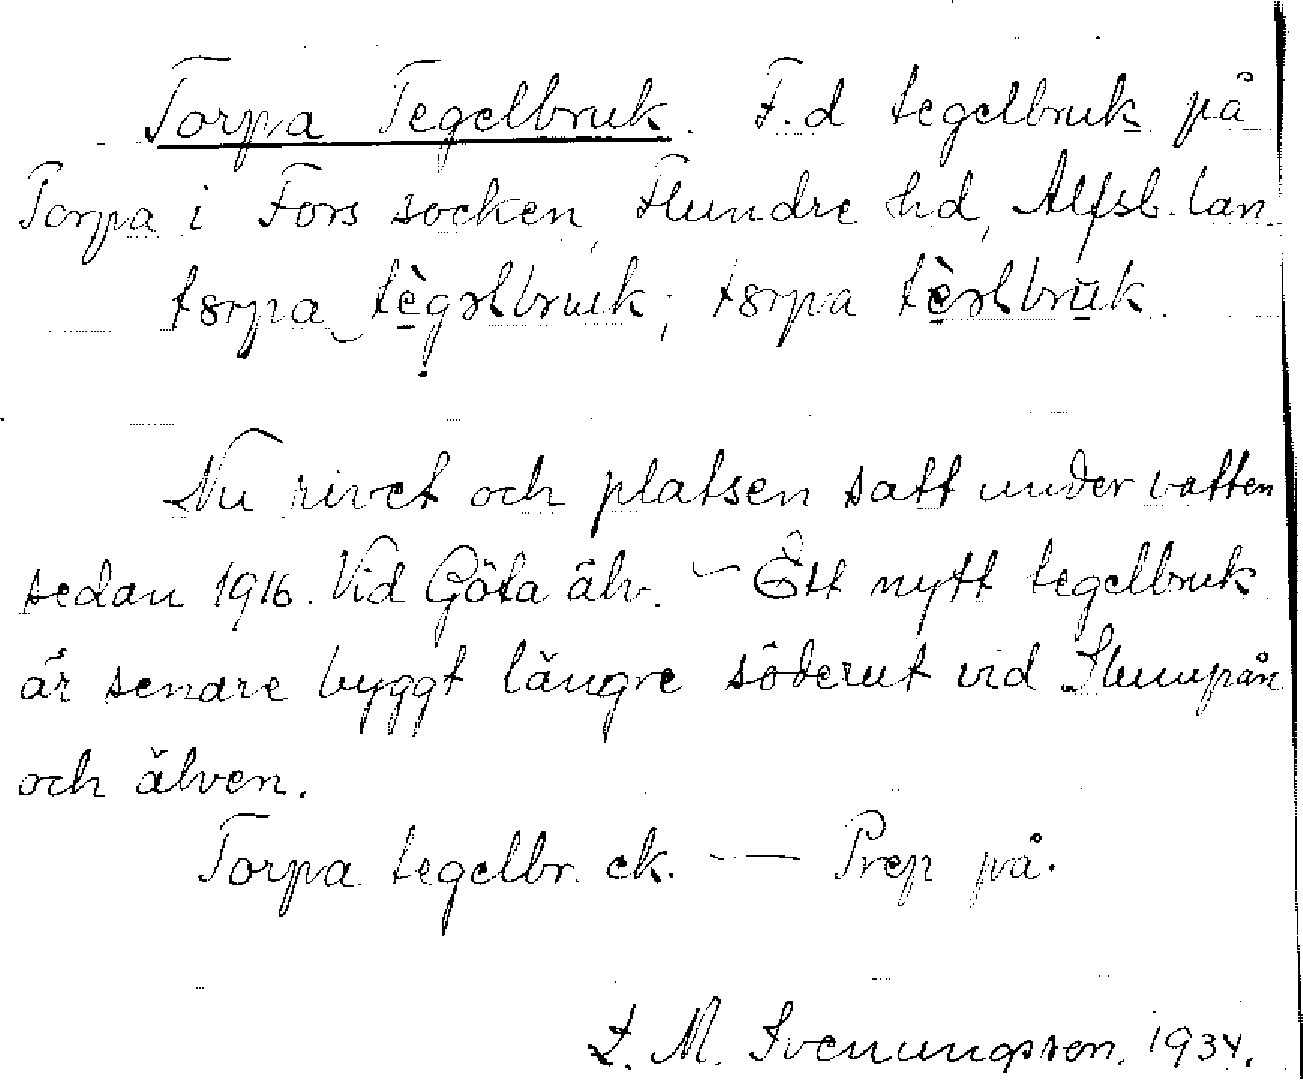 Torpa Tegelbruk. F.d tegelbruk på
Torpa i Fors socken, Flundre hd, Älfsb. län.
torpa tègəlbruk; torpa tèəlbruk.
Nu rivet och platsen satt under vatten
sedan 1916. Vid Göta älv. – Ett nytt tegelbruk
är senare byggt längre söderut vid Slumpån
och älven.
Torpa tegelbr. ek. — Prep på.
L. M. Svenungsson. 1934.